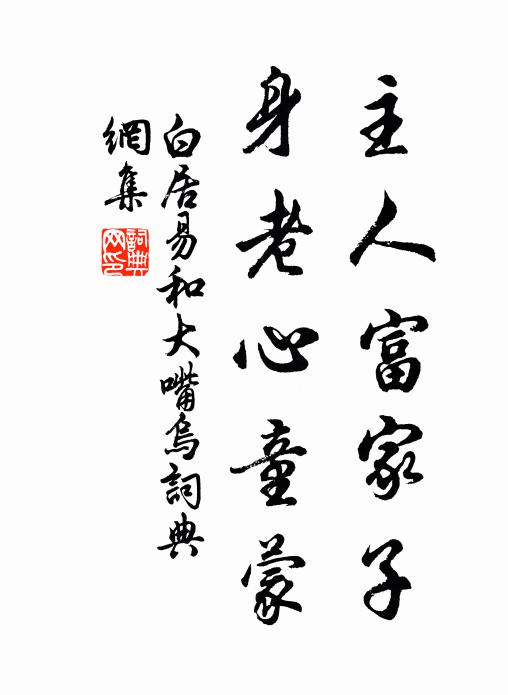 主人富家子
身老心童蒙
白居易和大嘴烏詞典
網集
詞典
网印